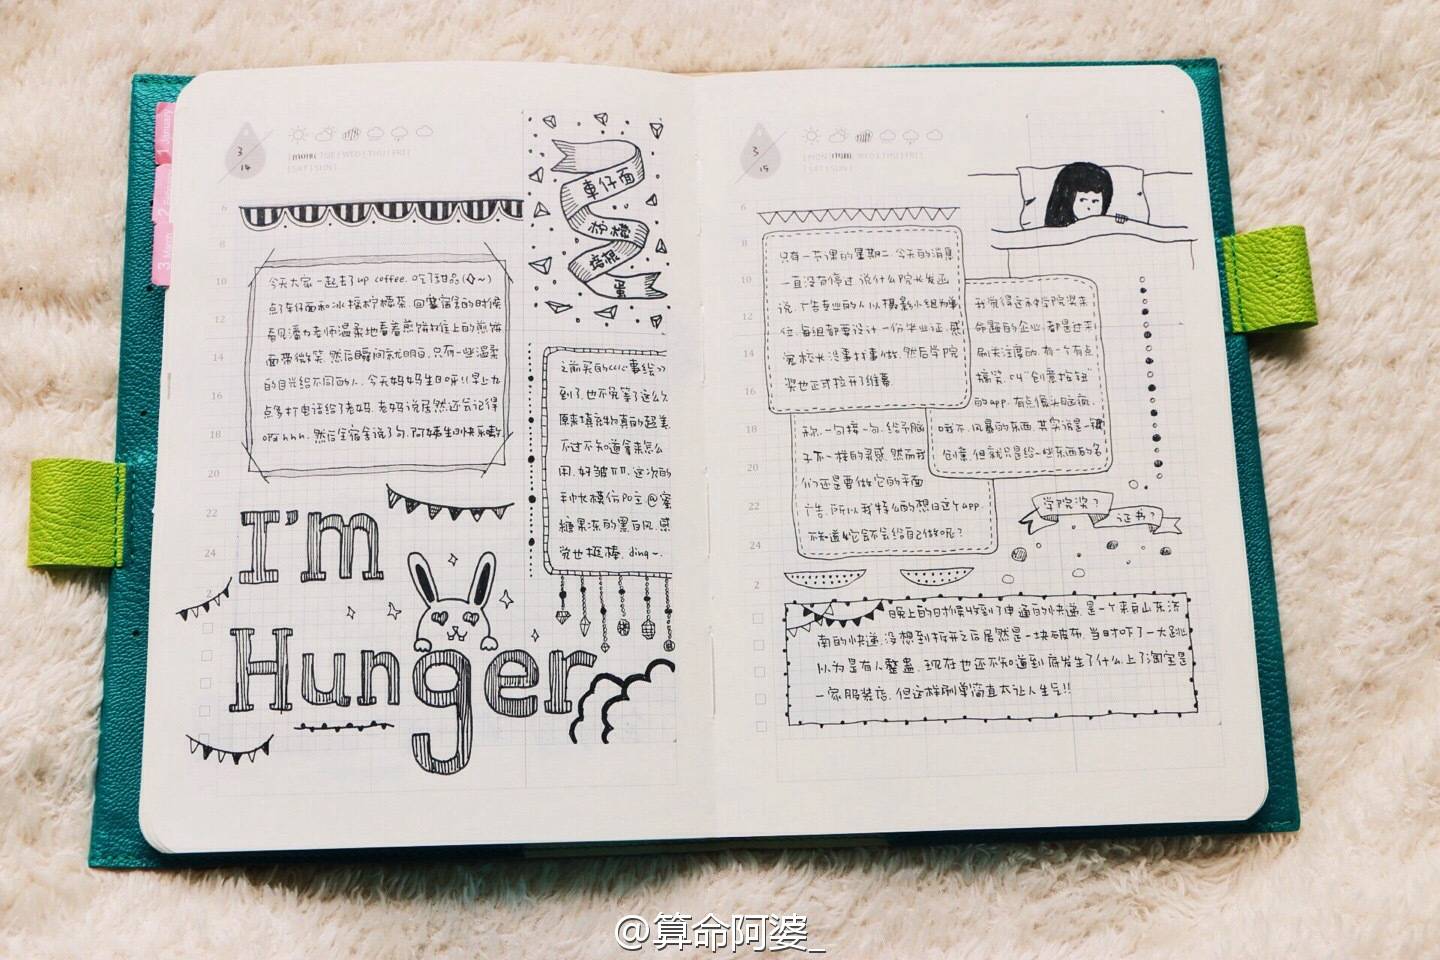 1 January
2
3
3
14
MON TUE WED THU FRI
SAT SUN
6
8
10
12
14
16
18
20
22
24
2
車仔面
柠檬
培根
蛋
今天大家一起去了up coffee. 吃了甜品(◇~)
点了车仔面和冰摇柠檬茶. 回宿舍的时候
看见潘力老师温柔地看着煎饼摊上的煎饼
面带微笑. 然后瞬间就明白. 只有一些温柔
的目光给不同的人. 今天妈妈生日呀!! 早上九
点多打电话给了老妈. 老妈说居然还会记得
哈哈hhh. 然后全宿舍说了句. 阿姨生日快乐
之前买的《心事绘》
到了. 也不免等了这么久
原来填充物真的超美
不过不知道拿来怎么
用. 好皱TTT. 这次的
手帐模仿po主@蜜
糖果冻的黑白风. 感
觉也挺棒. ding~.
I'm
Hunger
3
15
MON TUE WED THU FRI
SAT SUN
6
8
10
12
14
16
18
20
22
24
2
只有一节课的星期二. 今天的消息
一直没有停过. 说什么院长发函
说. 广告专业的人以摄影小组为单
位. 每组都要设计一份毕业证. 感
觉校长没事找事做. 然后学院
奖也正式拉开了维幕.
我觉得这种学院奖来
命题的企业. 都是过来
刷关注度的. 有一个有点
搞笑. 叫“创意按钮”
的app. 有点像头脑疯.
哦不. 风暴的东西. 其实说是一键
创意. 但就只是给一些东西的名
称. 一句接一句. 给予脑
子不一样的灵感. 然而我
们还是要做它的平面
广告. 所以我特么的想日这个app.
不知道它会不会给自己做呢?
学院奖?
证书?
晚上的时候收到了申通的快递. 是一个来自山东济
南的快递. 没想到拆开之后居然是一块破布. 当时吓了一大跳
以为是有人整蛊. 现在也还不知道到底发生了什么. 上了淘宝是
一家服装店. 但这样刷单简直太让人生气!!
@算命阿婆_